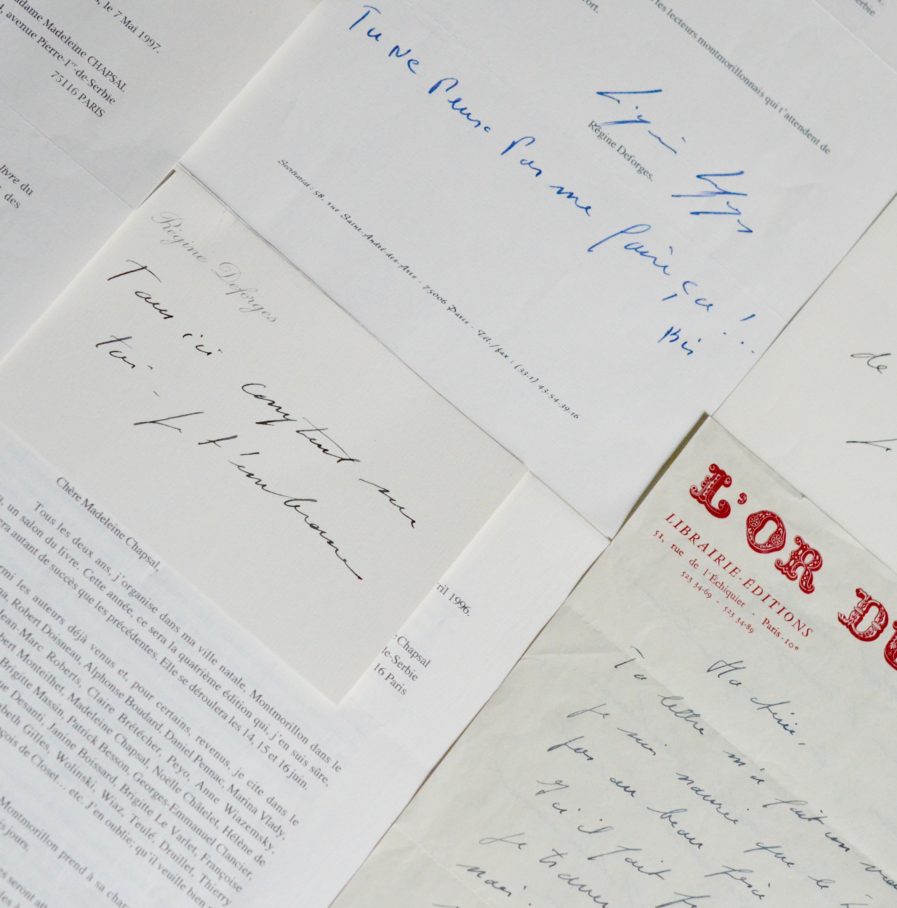 , le 7 Mai 1997.
Madame Madeleine CHAPSAL
, avenue Pierre-1er-de-Serbie
75116 PARIS
livre du
des
les lecteurs montmorillonnais qui t'attendent de
ort.
Régine Deforges.
Tu ne peux pas me faire ça !...
Bis
Secrétariat : 58, rue Saint-André-des-Arts - 75006 Paris - Tél./fax : (33-1) 43.54.39.16
Régine Deforges
Tous ici comptent sur
toi -
Je t'embrasse
de
ril 1996.
Chapsal
de-Serbie
16 Paris
Chère Madeleine Chapsal,
Tous les deux ans, j'organise dans ma ville natale, Montmorillon dans le
, un salon du livre. Cette année, ce sera la quatrième édition qui, j'en suis sûre,
era autant de succès que les précédentes. Elle se déroulera les 14, 15 et 16 juin.
rmi les auteurs déjà venus et, pour certains, revenus, je cite dans le
Robert Doisneau, Alphonse Boudard, Daniel Pennac, Marina Vlady,
Jean-Marc Roberts, Claire Brétécher, Peyo, Anne Wiazemsky,
bert Monteilhet, Madeleine Chapsal, Noëlle Châtelet, Hélène de
Brigitte Massin, Patrick Besson, Georges-Emmanuel Clancier,
ue Desanti, Janine Boissard, Brigitte Le Varlet, Françoise
abeth Gilles, Wolinski, Wiaz, Teulé, Druillet, Thierry
nçois de Closet... etc. J'en oublie; qu'il veuille bien
Montmorillon prend à sa char
s jours.
es seront
L'OR DU
LIBRAIRIE-ÉDITIONS
51, rue de l'Échiquier - Paris-10e
523 34-69 - 523 34-89
Ma chérie,
Ta lettre m'a fait un
je suis navrée que le
pas au beau fixe
qu'il fait
Je